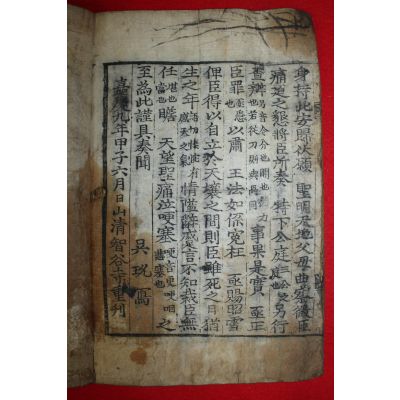 身持此安歸伏願 聖明天地父母曲察微臣
痛迫之懇將臣所奏特下公庭 另行
查辨 事果是實 亟正
臣罪 以肅 王法如係冤枉 亟賜昭雪
俾臣得以自立於天壤之間則臣雖死之日猶
生之年 情 辭 言不知裁臣無
任 瞻 天望聖痛泣哽塞 之
至爲此謹具奏聞
吳 寫
嘉慶九年甲子六月日山淸智谷寺重刊